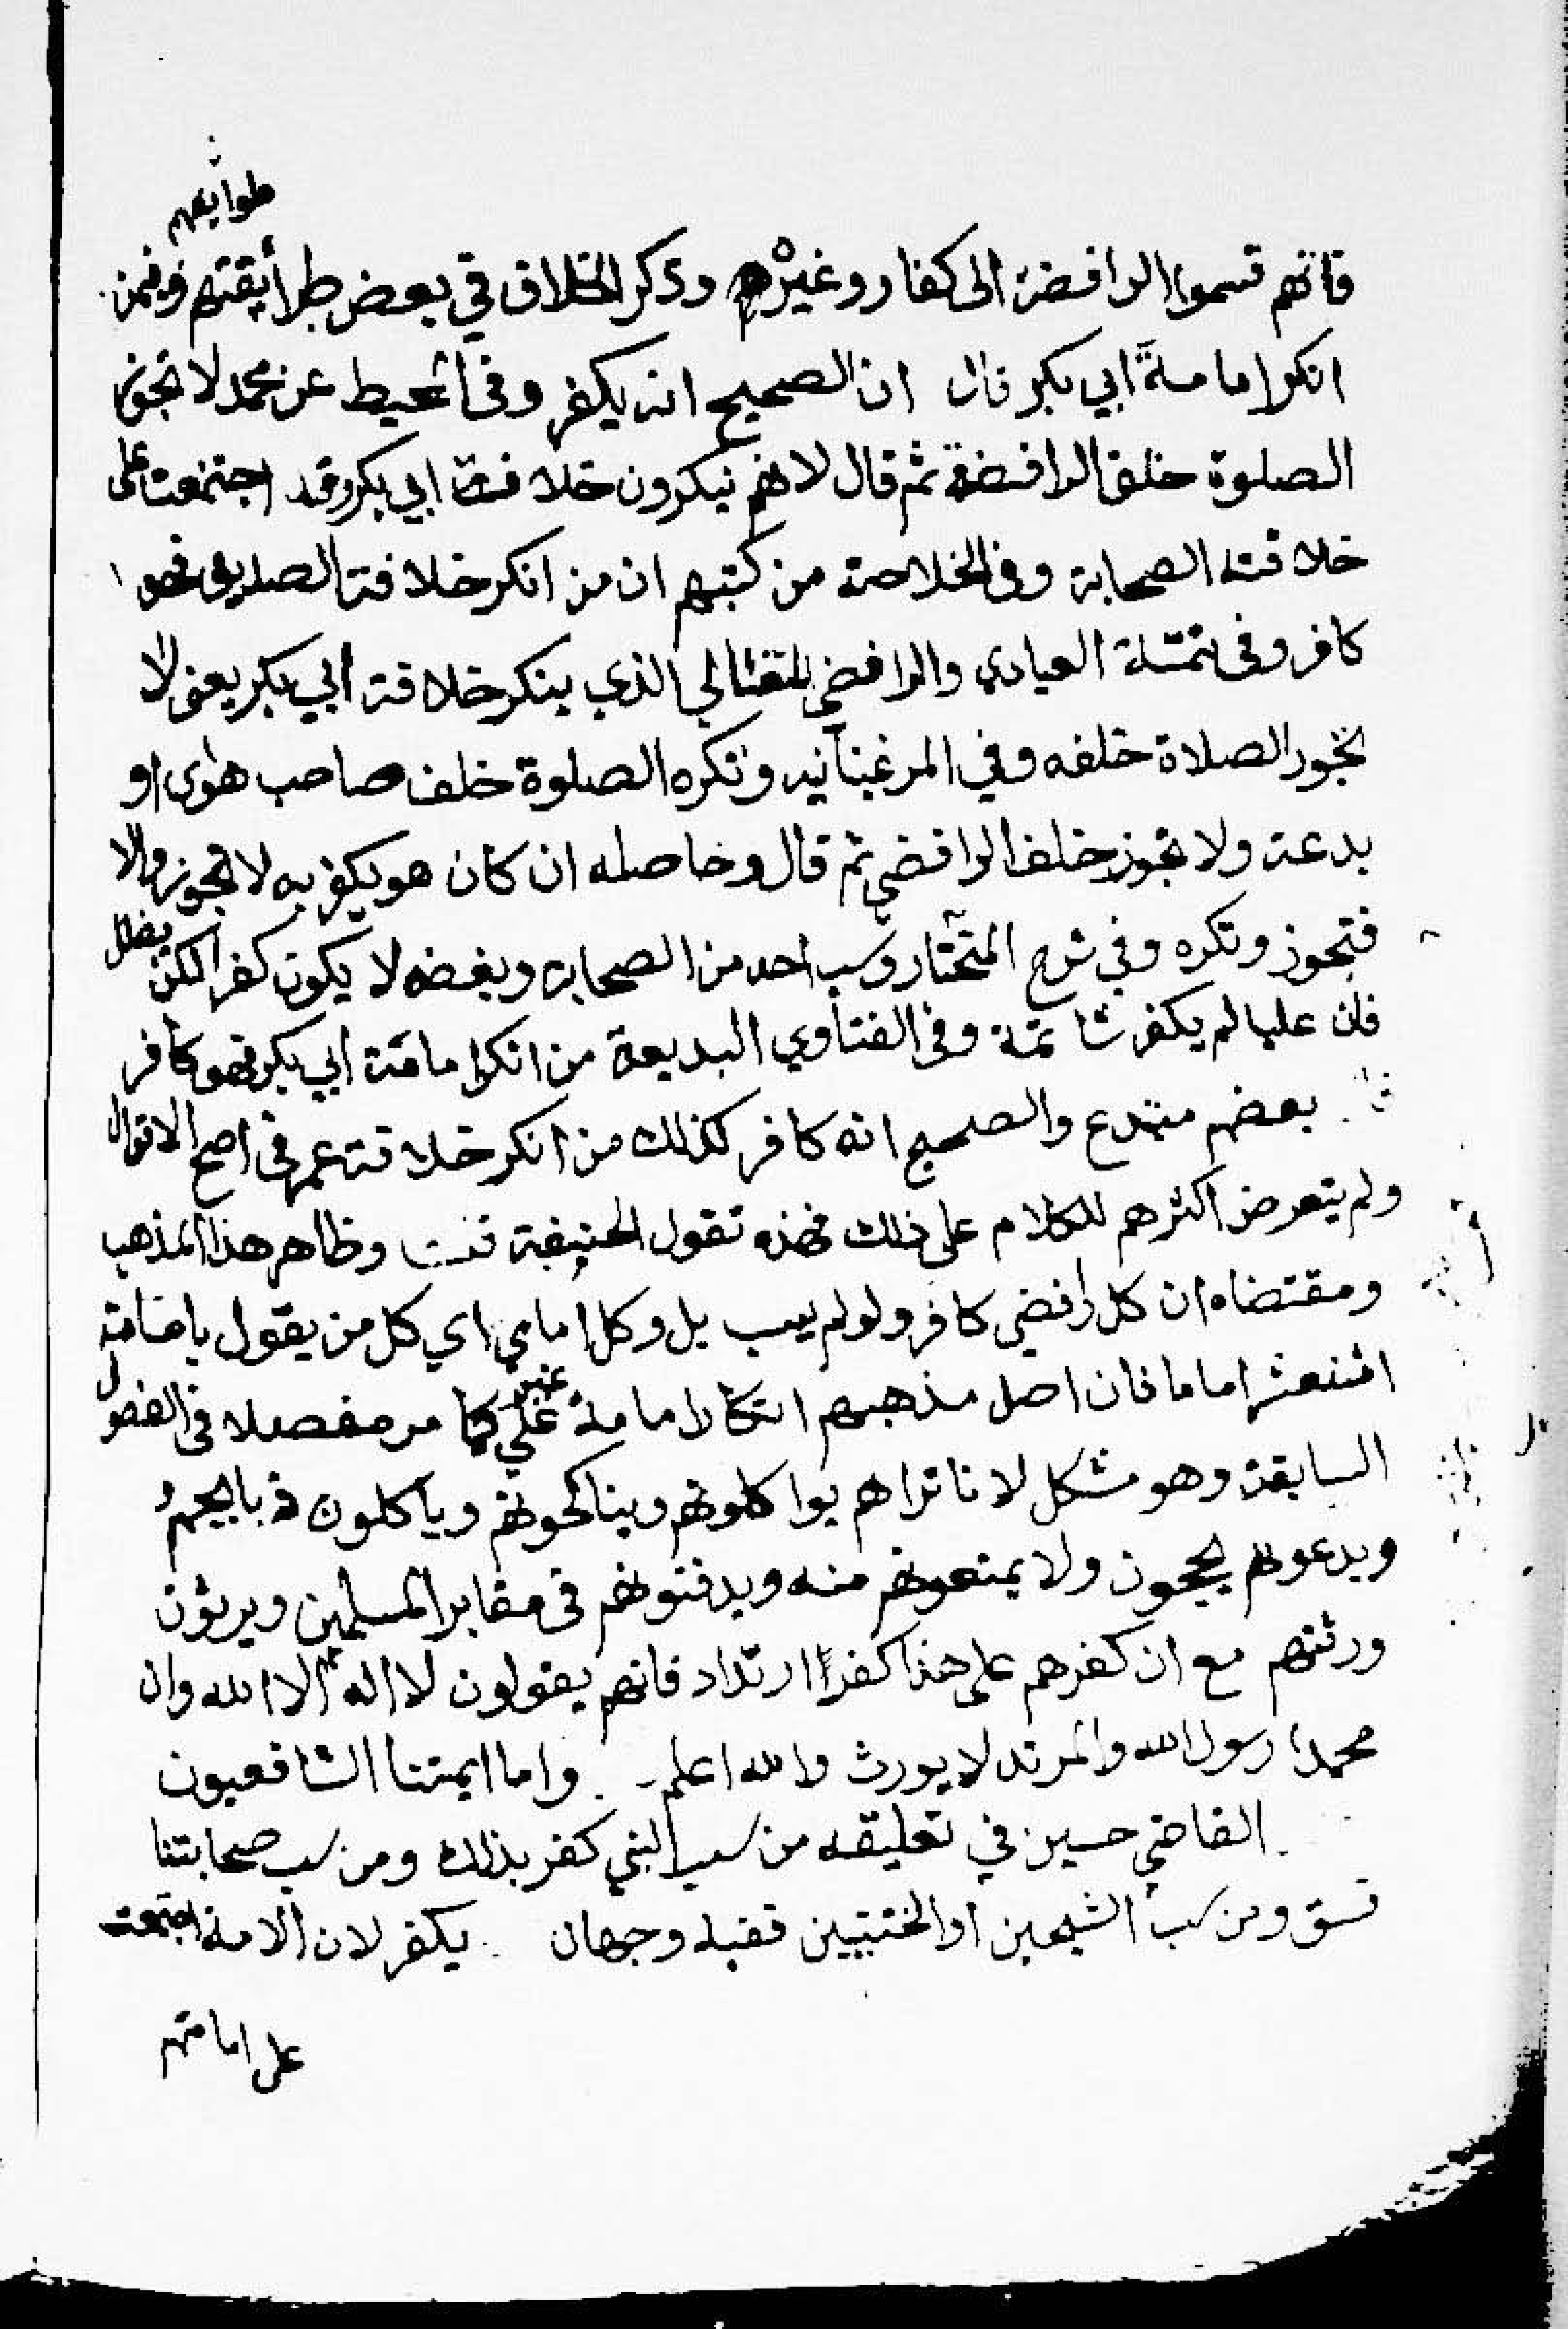 طوايفهم
فانهم قسموا الرافضة الى كفار وغيرهم وذكر الخلاف في بعض طرايقتهم وفيمن
انكر امامة ابي بكر قال ان الصحيح انه يكفر وفى المحيط عن محمد لا تجوز
الصلوة خلف الرافضة ثم قال لانهم ينكرون خلافة ابي بكر وقد اجتمعت على
خلافته الصحابة وفى الخلاصة من كتبهم ان من انكر خلافة الصديق فهو
كافر وفى تتمة العبادي والرافضي المتغالي الذي ينكر خلافة ابي بكر يعنى لا
تجوز الصلاة خلفه وفي المرغينانيه وتكره الصلوة خلف صاحب هوى او
بدعة ولا تجوز خلف الرافضي ثم قال وحاصله ان كان هو يكفر به لا تجوز والا
فتجوز وتكره وفي شرح المختار وسب احد من الصحابة وبغضه لا يكون كفرا لكن يضلل
فان عليا لم يكفر شاتمه وفى الفتاوي البديعة من انكر امامة ابي بكر فهو كافر
قال بعضهم مبتدع والصحيح انه كافر كذلك من انكر خلافة عمر فى اصح الاقوال
ولم يتعرض اكثرهم للكلام على ذلك فهذه نقول الحنيفية قلت وظاهر هذا المذهب
ومقتضاه ان كل رافضي كافر ولو لم يسب بل وكل امامي اي كل من يقول بامامة
اثنعشر اماما فان اصل مذهبهم انكار امامة غير علي كما مر مفصلا فى الفصول
السابقة وهو مشكل لانا نراهم يواكلونهم ويناكحونهم وياكلون ذبايحهم
ويدعوهم يحجون ولا يمنعونهم منه ويدفنونهم فى مقابر المسلمين ويرثون
ورثتهم مع ان كفرهم على هذا كفر ارتداد فانهم يقولون لا اله الا الله وان
محمدا رسول الله والمرتد لا يورث والله اعلم واما ايمتنا الشافعيون
القاضي حسين في تعليقه من سب النبي كفر بذلك ومن سب صحابتنا
فسق ومن سب الشيخين او الختنين ففيه وجهان يكفر لان الامة اجتمعت
على امامتهم